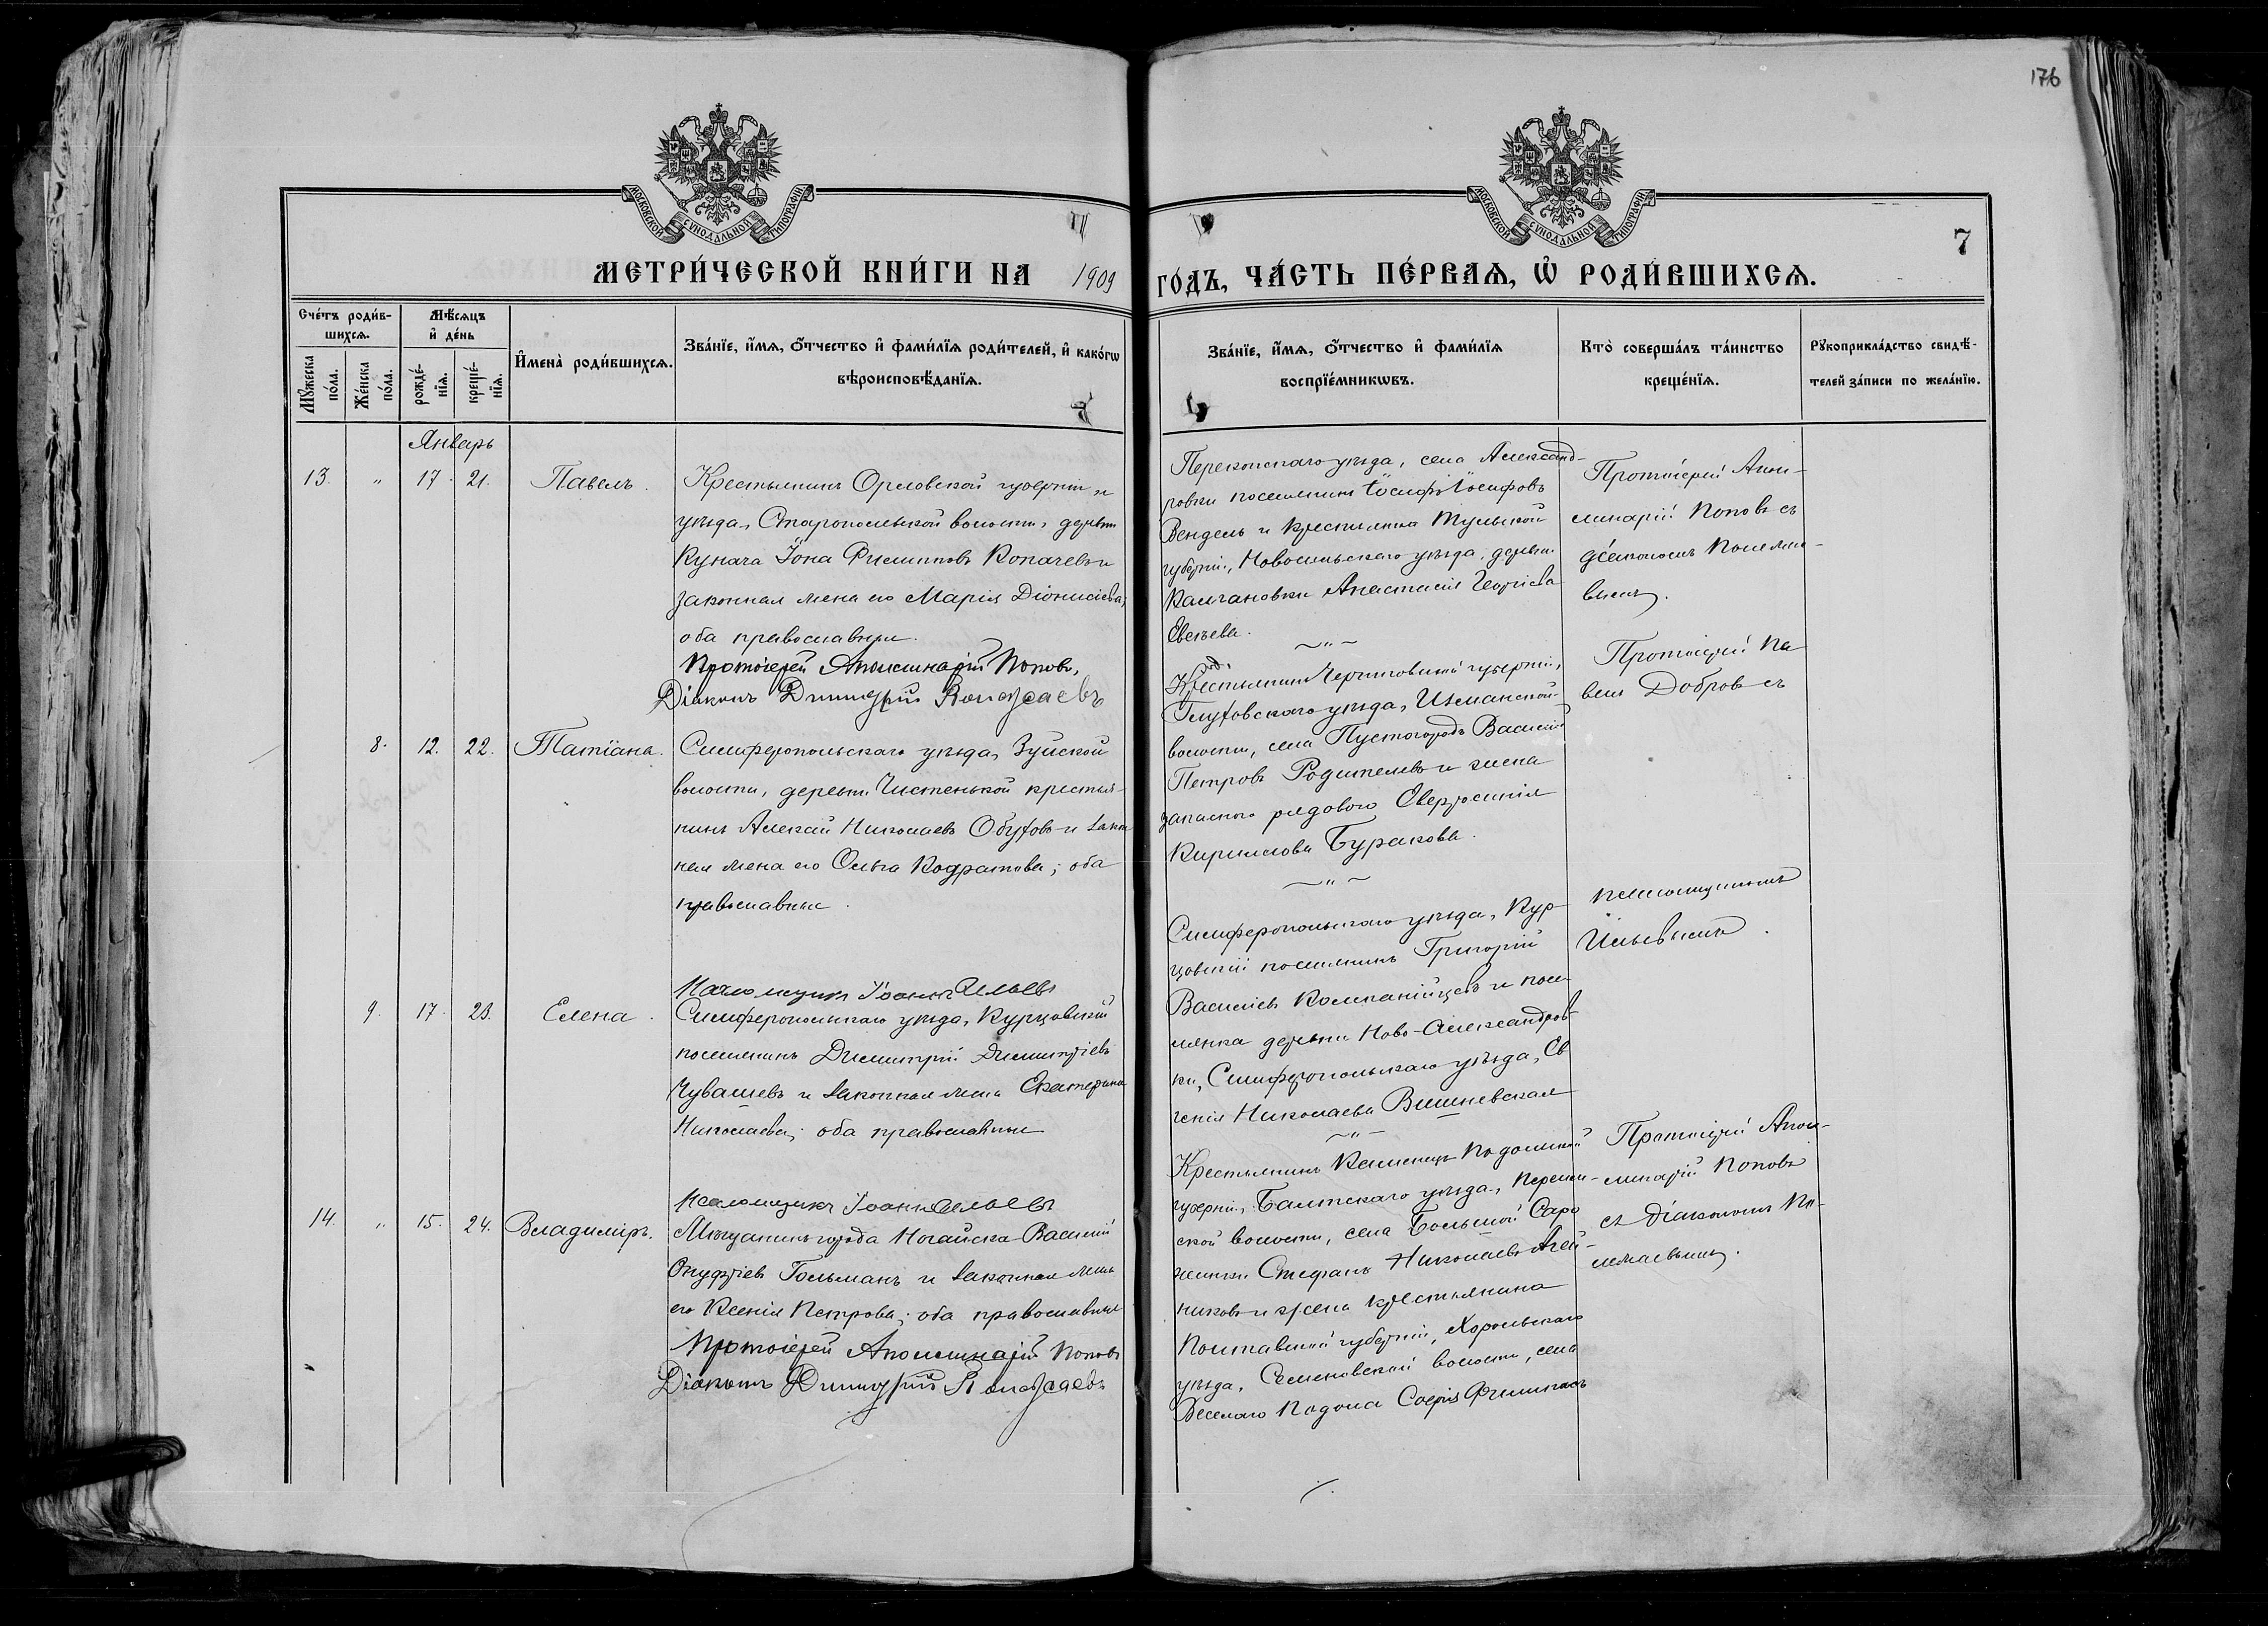 176
МОСКОВСКОЙ СѴНОДАЛЬНОЙ ТИПОГРАФІИ
МОСКОВСКОЙ СѴНОДАЛЬНОЙ ТИПОГРАФІИ
7
МЕТРИ́ЧЕСКОЙ КНИ́ГИ НА 1909
ГО́ДЪ, ЧА́СТЬ ПЕ́РВАѦ, Ѡ҆ РОДИ́ВШИХСѦ.
Сче́тъ роди́в-
шихсѧ.
Мѣ́сѧцъ
и҆ де́нь
Мꙋ́жеска
по́ла.
Же́нска
по́ла.
рожде́-
нїѧ.
креще́-
нїѧ.
И҆мена̀ роди́вшихсѧ.
Зва́нїе, и҆́мѧ, ѻ҆́тчество и҆ фами́лїѧ роди́телей, и҆ како́гѡ
вѣроисповѣ́данїѧ.
Зва́нїе, и҆́мѧ, ѻ҆́тчество и҆ фами́лїѧ
воспрїе́мникѡвъ.
Кто̀ соверша́лъ та́инство
креще́нїѧ.
Рꙋкоприкла́дство свидѣ́-
телей за́писи по жела́нїю.
Январь
13. " 17. 21. Павелъ.
Крестьянинъ Орловской губерніи и
уѣзда, Старопольской волости, деревни
Кунача Іона Филипповъ Копачевъ и
законная жена его Марія Діонисіева;
оба православные.
Протоіерей Аполлинарій Поповъ,
Діаконъ Димитрій
Перекопскаго уѣзда, села Александ-
ровки поселянинъ Іосифъ Іосифовъ
Вендель и крестьянка Тульской
губерніи, Новосильскаго уѣзда, деревни
Калгановки Анастасія Георгіева
Евсѣева.
Протоіерей Апол-
линарій Поповъ съ
діакономъ
8. 12. 22. Татіана.
Симферопольскаго уѣзда, Зуйской
волости, деревни Чистенькой крестья-
нинъ Алексій Николаевъ Обуховъ и закон
ная жена его Ольга Кодратова; оба
православные.
Псаломщикъ Іоаннъ Ильевъ
Крестьянинъ Черниговской губерніи,
Глуховскаго уѣзда,
волости, села Пустогородъ Василій
Петровъ Родителевъ и жена
запаснаго рядового Евфросинія
Кириллова Буракова.
Протоіерей Па
велъ Добровъ съ
псаломщикомъ
Ильевымъ.
9. 17. 23. Елена.
Симферопольскаго уѣзда, Курцовскій
поселянинъ Димитрій Димитріевъ
Чувашевъ и законная жена Екатерина
Николаева; оба православные
Псаломщикъ Іоаннъ Ильевъ
Симферопольскаго уѣзда, Кур-
цовскій поселянинъ Григорій
Василіевъ Компанійцевъ и посе-
лянка деревни Ново-Александров-
ки, Симферопольскаго уѣзда, Ев
генія Николаева Вишневская
14. " 15. 24. Владиміръ.
Мѣщанинъ города Ногайска Василій
Онуфріевъ Гольманъ и законная жена
его Ксенія Петрова; оба православные
Протоіерей Аполлинарій Поповъ
Діаконъ Димитрій
Крестьянинъ Каменецъ Подольской
губерніи, Балтскаго уѣзда,
ской волости, села Большой
Стефанъ Николаевъ
и жена крестьянина
Полтавской губерніи, Хорольскаго
уѣзда, Семеновской волости, села
Веселаго Подола Софія
Протоіерей Апол-
линарій Поповъ
съ діакономъ